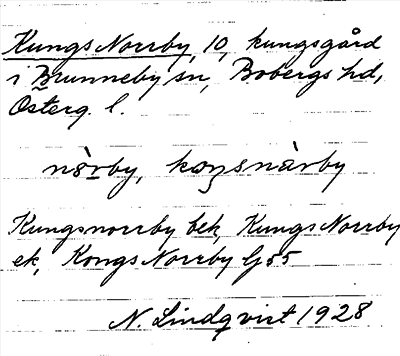 Kungs Norrby, 10, kungsgård
i Brunneby sn, Bobergs hd,
Österg. l.
nòrby, koŋsnàrby
Kungsnorrby bek, Kungs Norrby
ek, Kongs Norrby Gj 55
N. Lindqvist 1928